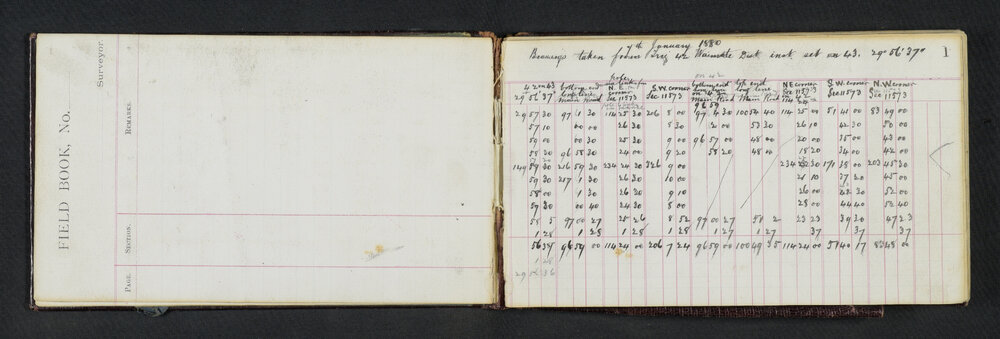 FIELD BOOK, No.
Surveyor.
REMARKS
SECTION.
PAGE.
1
7th January 1880
Bearings taken from Trig 42 Waimate Dist inst set on 43. 29° 56' 37"
on 42
42 on 43
29 56 37
bottom end
long line
Main Road
N.E.
corner
Sec 11573
S.W. corner
Sec 11573
bottom end
Main Road
96 59
top end
long line
Main Road
NE corner
Sec 11573
Trig 42
S.W. corner
Sec 11573
N.W. corner
Sec 11573
29 57 30 97 1 30 114 25 30 206 8 00 97 4 30 100 54 40 114 25 00 51 41 00 83 49 00
57 10 00 00 26 30 5 30 2 00 53 30 26 10 42 30 50 00
59 00 00 30 25 30 9 00 96 57 00 48 00 20 00 35 00 43 00
58 20 96 58 30 24 00 9 20 58 20 48 00 18 20 34 00 42 00
149 59 30 216 59 30 234 24 30 326 9 00 234 22 30 171 38 00 203 45 30
59 30 217 1 30 26 30 10 00 21 10 37 20 45 00
58 00 1 30 26 30 9 10 26 00 42 30 52 00
57 30 00 40 24 30 8 00 28 00 44 40 52 40
58 5 97 00 27 25 26 8 52 97 00 27 51 2 23 23 39 20 47 23
1 28 1 28 1 28 1 28 1 27 1 27 37 37 37
56 37 96 59 00 114 24 00 206 7 24 96 59 00 100 49 35 114 24 00 51 40 17 83 48 00
1 28
29 56 36